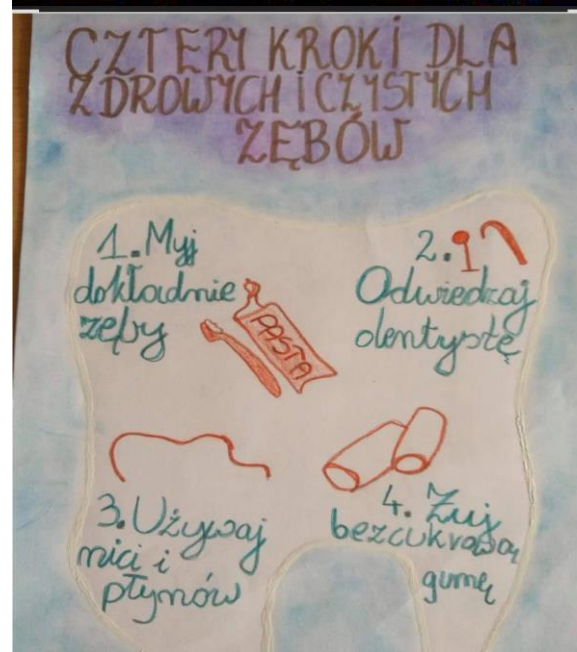 CZTERY KROKI DLA
ZDROWYCH I CZYSTYCH
ZĘBÓW
1. Myj
dokładnie
zęby
PASTA
2.
Odwiedzaj
dentystę
3. Używaj
nici i
płynów
4. Żuj
bezcukrową
gumę